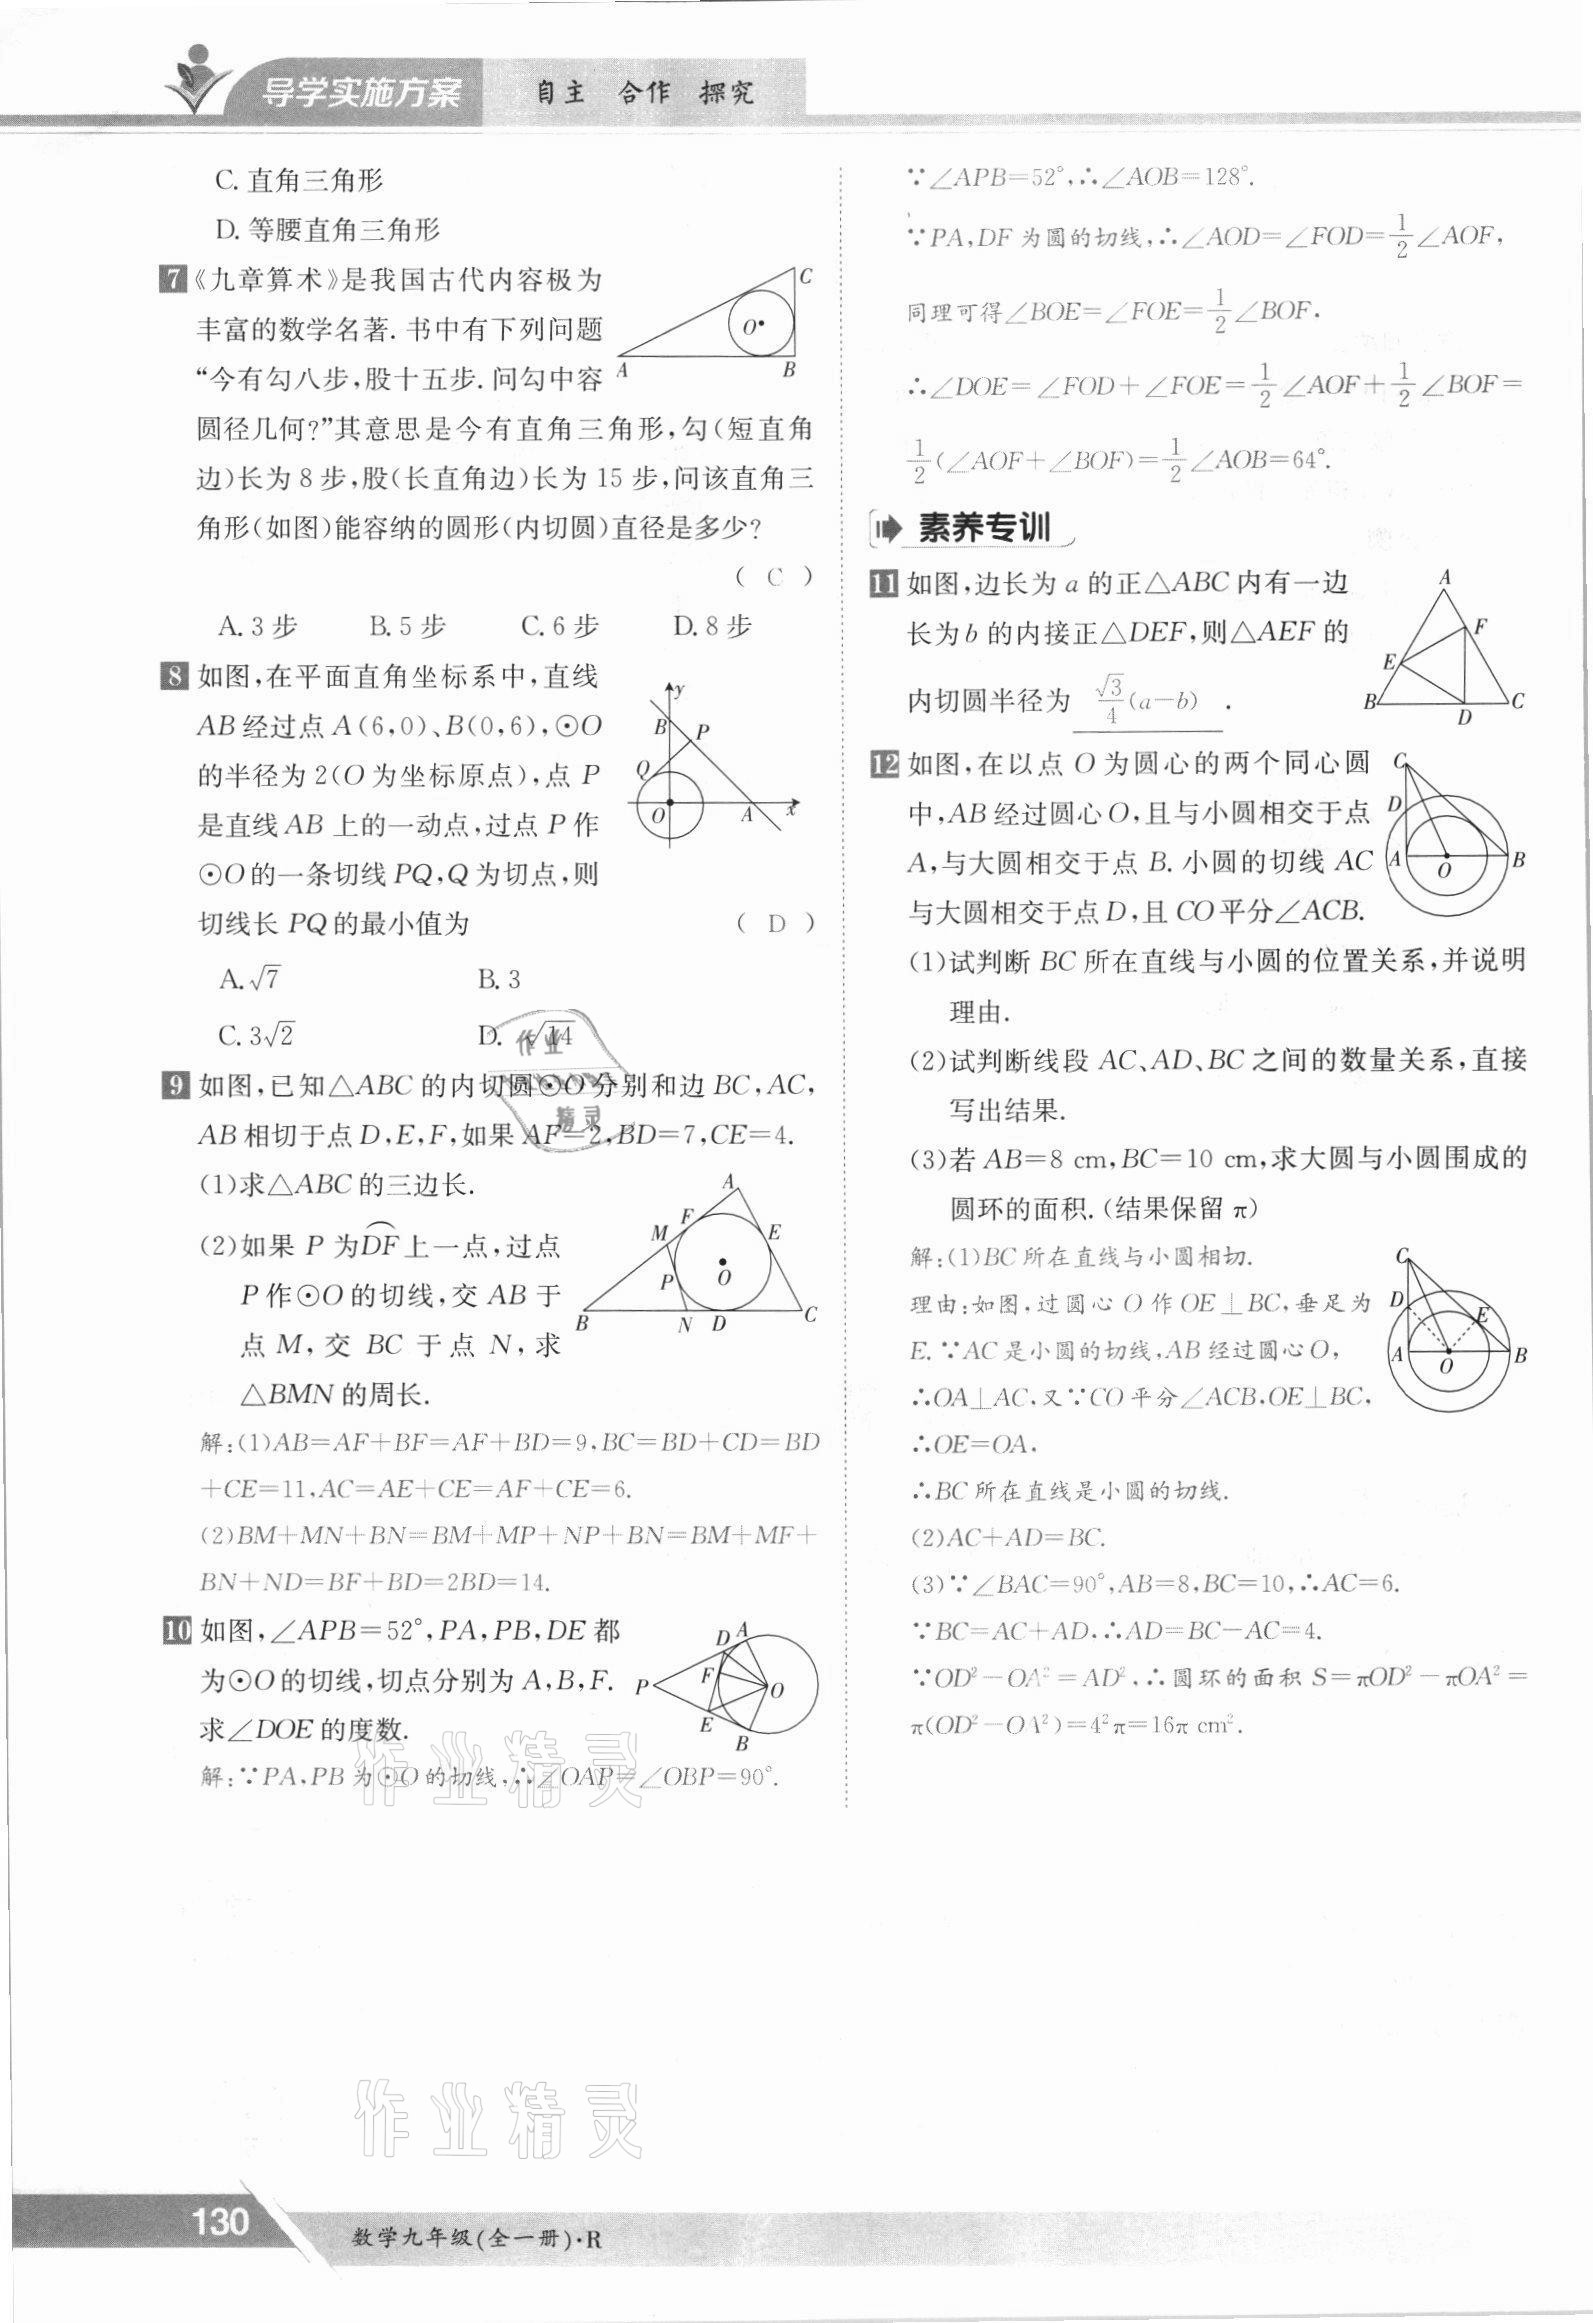 导学实施方案 自主 合作 探究
C. 直角三角形
D. 等腰直角三角形
7 《九章算术》是我国古代内容极为
丰富的数学名著. 书中有下列问题
“今有勾八步,股十五步. 问勾中容
圆径几何?”其意思是今有直角三角形,勾(短直角
边)长为 8 步,股(长直角边)长为 15 步,问该直角三
角形(如图)能容纳的圆形(内切圆)直径是多少?
( C )
A. 3 步 B. 5 步 C. 6 步 D. 8 步
C
O
A
B
8 如图,在平面直角坐标系中,直线
AB 经过点 A(6,0)、B(0,6),⊙O
的半径为 2(O 为坐标原点),点 P
是直线 AB 上的一动点,过点 P 作
⊙O 的一条切线 PQ,Q 为切点,则
切线长 PQ 的最小值为 ( D )
A. √7 B. 3
C. 3√2 D. √14
y
B P
Q
O A x
9 如图,已知△ABC 的内切圆⊙O 分别和边 BC,AC,
AB 相切于点 D,E,F,如果 AF=2,BD=7,CE=4.
(1)求△ABC 的三边长.
(2)如果 P 为DF⌒上一点,过点
P 作⊙O 的切线,交 AB 于
点 M, 交 BC 于点 N, 求
△BMN 的周长.
A
F
M E
P O
B N D C
解:(1)AB=AF+BF=AF+BD=9,BC=BD+CD=BD
+CE=11,AC=AE+CE=AF+CE=6.
(2)BM+MN+BN=BM+MP+NP+BN=BM+MF+
BN+ND=BF+BD=2BD=14.
10 如图,∠APB=52°,PA,PB,DE 都
为⊙O 的切线,切点分别为 A,B,F.
求∠DOE 的度数.
D A
F
P O
E
B
解:∵PA,PB 为⊙O 的切线,∴∠OAP=∠OBP=90°.
∵∠APB=52°,∴∠AOB=128°.
∵PA,DF 为圆的切线,∴∠AOD=∠FOD=1/2∠AOF,
同理可得∠BOE=∠FOE=1/2∠BOF.
∴∠DOE=∠FOD+∠FOE=1/2∠AOF+1/2∠BOF=
1/2(∠AOF+∠BOF)=1/2∠AOB=64°.
素养专训
11 如图,边长为 a 的正△ABC 内有一边
长为 b 的内接正△DEF,则△AEF 的
内切圆半径为 √3/4(a-b) .
A
F
E
B D C
12 如图,在以点 O 为圆心的两个同心圆
中,AB 经过圆心 O,且与小圆相交于点
A,与大圆相交于点 B. 小圆的切线 AC
与大圆相交于点 D,且 CO 平分∠ACB.
C
D
A O B
(1)试判断 BC 所在直线与小圆的位置关系,并说明
理由.
(2)试判断线段 AC、AD、BC 之间的数量关系,直接
写出结果.
(3)若 AB=8 cm,BC=10 cm,求大圆与小圆围成的
圆环的面积. (结果保留 π)
解:(1)BC 所在直线与小圆相切.
理由:如图,过圆心 O 作 OE⊥BC,垂足为
E. ∵AC 是小圆的切线,AB 经过圆心 O,
∴OA⊥AC,又∵CO 平分∠ACB,OE⊥BC,
∴OE=OA.
∴BC 所在直线是小圆的切线.
C
D E
A O B
(2)AC+AD=BC.
(3)∵∠BAC=90°,AB=8,BC=10,∴AC=6.
∵BC=AC+AD,∴AD=BC-AC=4.
∵OD²-OA²=AD²,∴圆环的面积 S=πOD²-πOA²=
π(OD²-OA²)=4²π=16π cm².
作业
精灵
作业精灵
作业精灵
130
数学九年级(全一册)·R